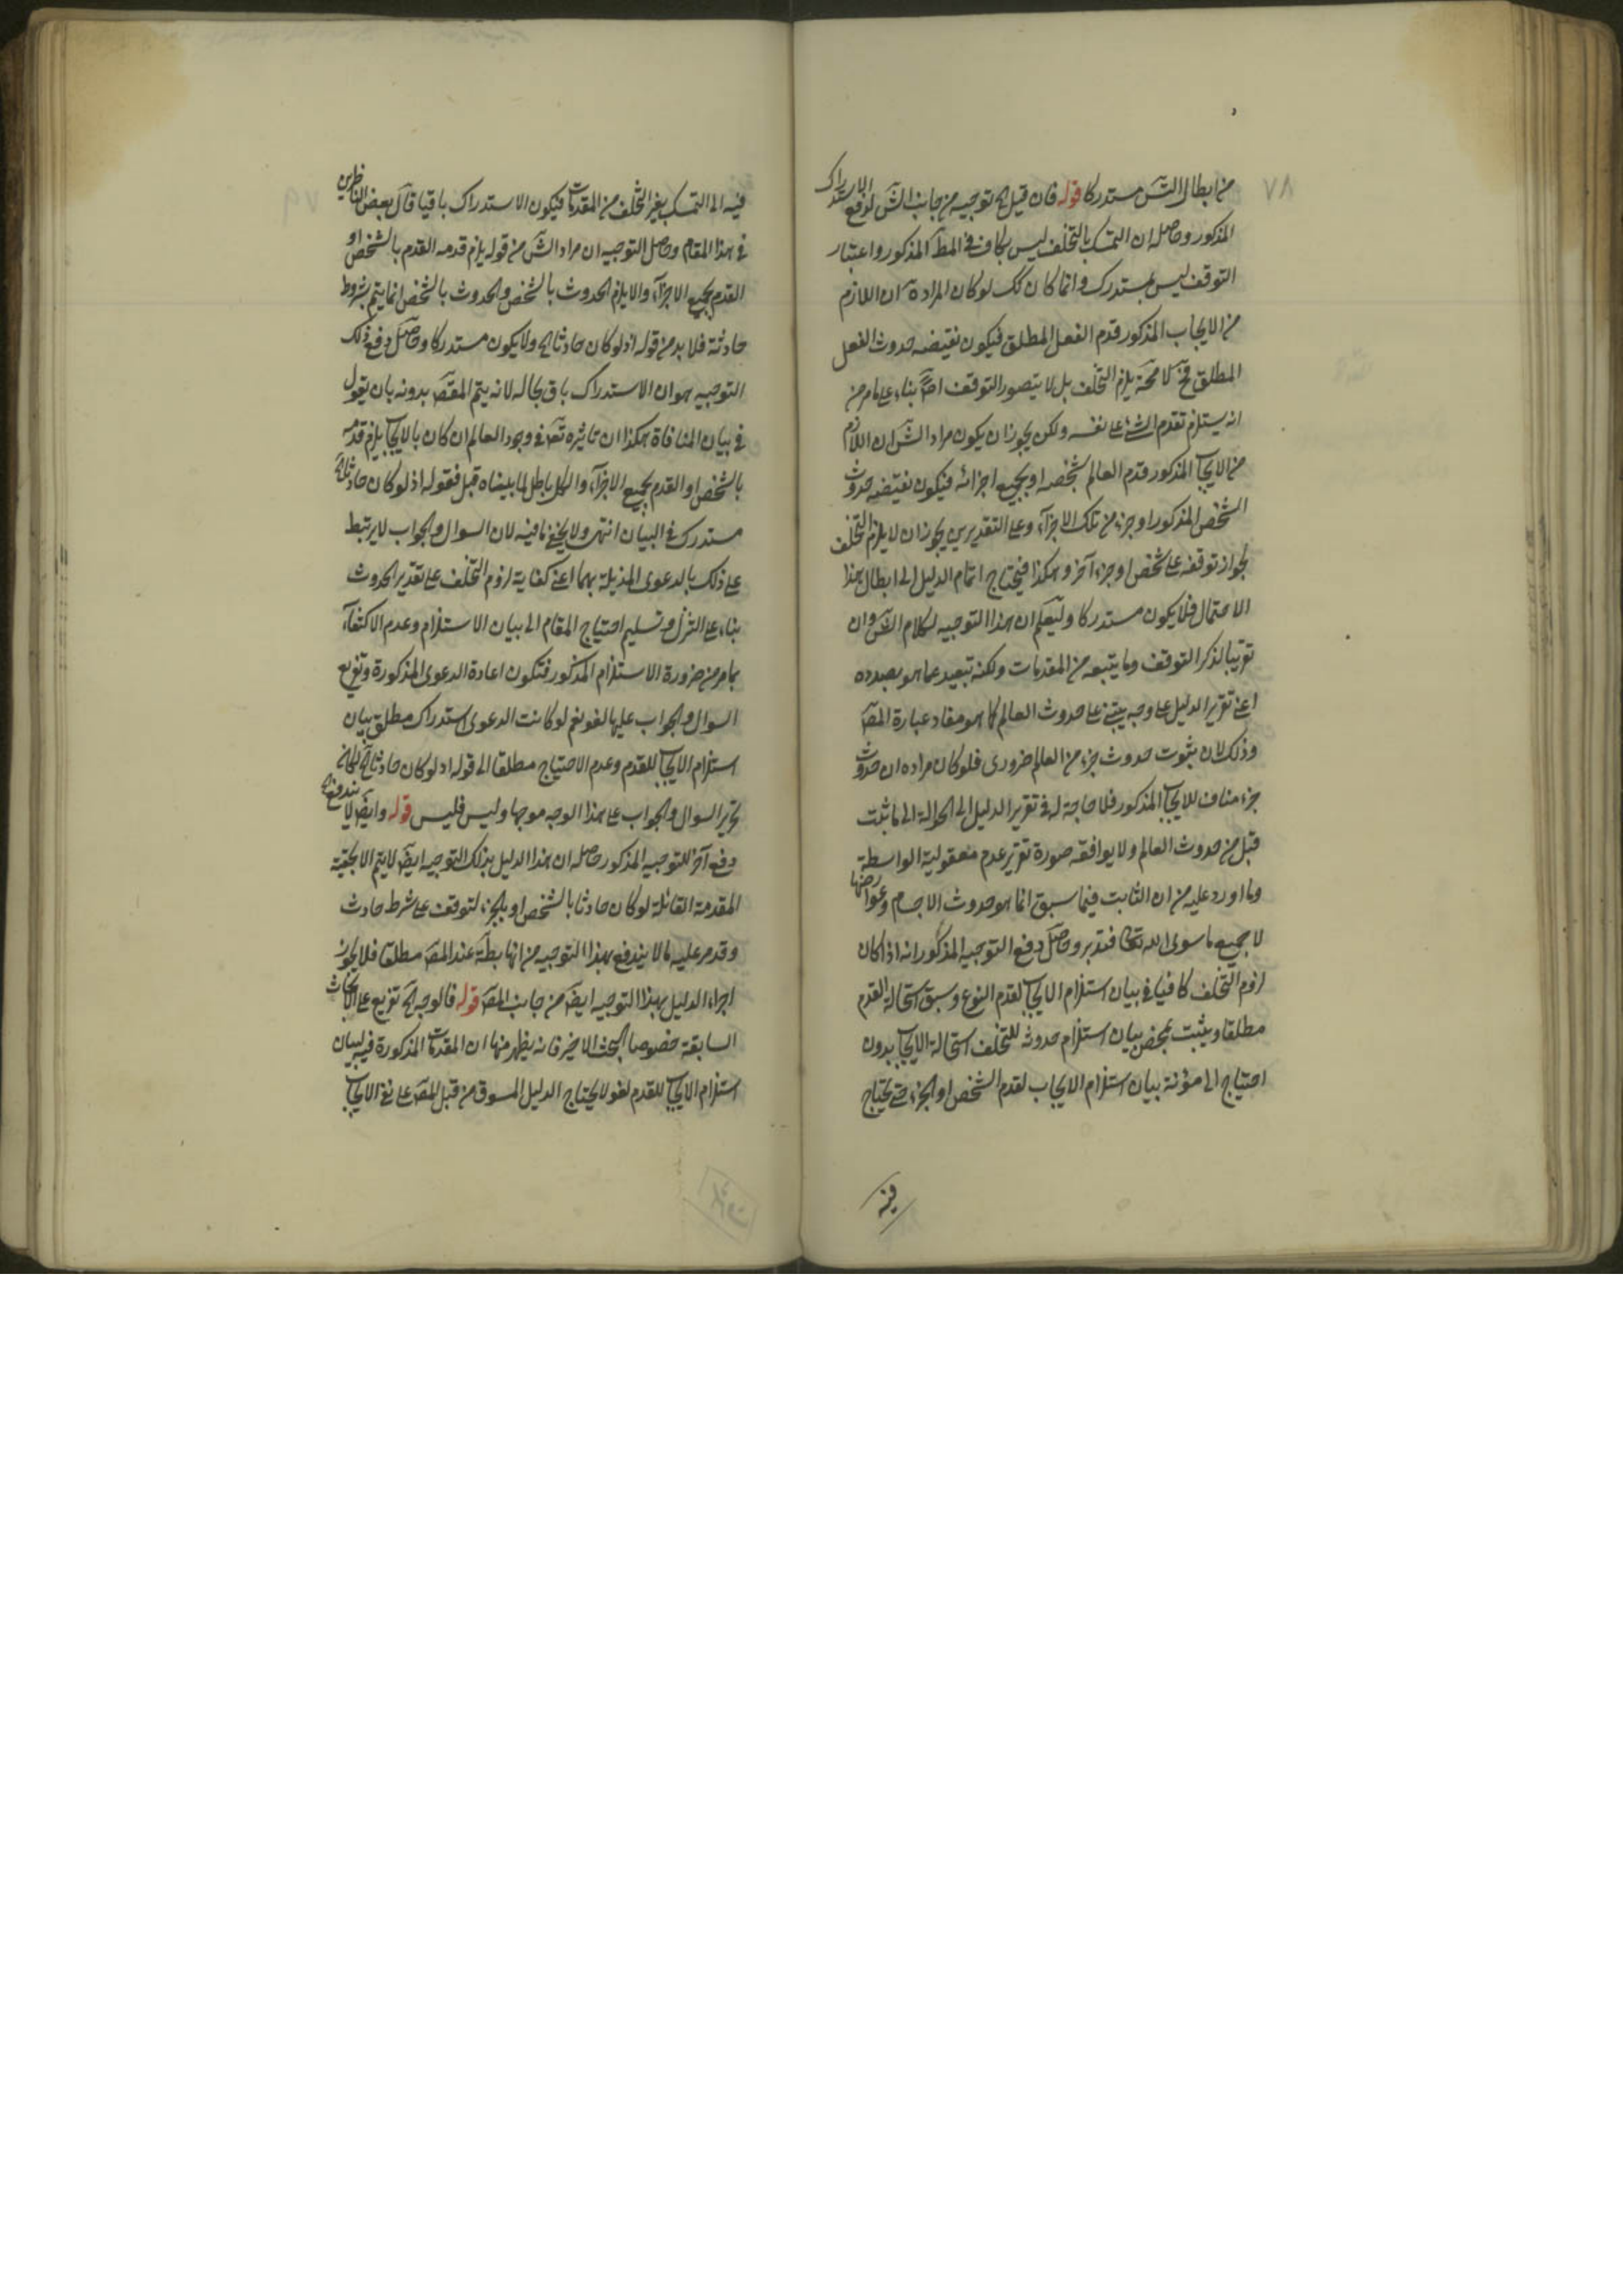 ٧٨
من ابطال الش مستدركا قوله فان قيل الخ توجيه من جانب الش لدفع الاستدراك
المذكور وحاصله ان التمسك بالتخلف ليس بكاف في المط المذكور واعتبار
التوقف ليس بمستدرك وانما كان كك لو كان المراد ان اللازم
من الايجاب المذكور قدم الفعل المطلق فيكون نقيضه حدوث الفعل
المطلق فح لا محة يلزم التخلف بل لا يتصور التوقف اصلا بناء على ما مر من
انه يستلزم تقدم الشئ على نفسه ولكن يجوز ان يكون مراد الش ان اللازم
من الايجاب المذكور قدم العالم بشخصه او بجميع اجزائه فيكون نقيضه حدوث
الشخص المذكور او جزء من تلك الاجزاء وعلى التقديرين يجوز ان لا يلزم التخلف
لجواز توقفه على شخص او جزء آخر وهكذا فيحتاج اتمام الدليل الى ابطال هذا
الاحتمال فلا يكون مستدركا وليعلم ان هذا التوجيه لكلام الش وان
تقريبا لذكر التوقف وما يتبعه من المقدمات ولكنه تبعيد عما هو بصدده
اعني تقرير الدليل على وجه يبتني على حدوث العالم كما هو مفاد عبارة المص
وذلك لان ثبوت حدوث جزء من العالم ضروري فلو كان مراده ان حدوث
جزء مناف للايجاب المذكور فلا حاجة له في تقرير الدليل الى الحوالة الى ما ثبت
قبل من حدوث العالم ولا يوافقه صورة تقرير عدم معقولية الواسطة
وما اورد عليه من ان الثابت فيما سبق انما هو حدوث الاجسام وعوارضها
لا جميع ما سوى الله تعالى فتدبر وحاصل دفع التوجيه المذكور انه اذا كان
لزوم التخلف كافيا في بيان استلزام الايجاب لقدم النوع وسبق استحالة القدم
مطلقا ويثبت بمحض بيان استلزام حدوثه للتخلف استحالة الايجاب بدون
احتياج الى مؤنة بيان استلزام الايجاب لقدم الشخص او الجزء حتى يحتاج
فيه
٧٩
فيه الى التمسك بغير التخلف من المقدمات فيكون الاستدراك باقيا قال بعض الناظرين
في هذا المقام وحاصل التوجيه ان مراد الش من قوله يلزم قدمه القدم بالشخص او
القدم بجميع الاجزاء والا يلزم الحدوث بالشخص والحدوث بالشخص انما يتم بشروط
حادثة فلا بد من قوله اذ لو كان حادثا الخ ولا يكون مستدركا وحاصل دفع ذلك
التوجيه هو ان الاستدراك باق بحاله لانه يتم المقص بدونه بان يقول
في بيان المنافاة هكذا ان تاثيره تعه في وجود العالم ان كان بالايجاب يلزم قدمه
بالشخص او القدم بجميع الاجزاء والكل باطل لما بيناه قبل فقوله اذ لو كان حادثا الخ
مستدرك في البيان انتهى ولا يخفى ما فيه لان السوال والجواب لا يرتبط
على ذلك بالدعوى المذيلة بهما اعني كفاية لزوم التخلف على تقدير الحدوث
بناء على التنزل وتسليم احتياج المقام الى بيان الاستلزام وعدم الاكتفاء
بما مر من ضرورة الاستلزام المذكور فتكون اعادة الدعوى المذكورة وتفريع
السوال والجواب عليها لغو نعم لو كانت الدعوى استدراك مطلق بيان
استلزام الايجاب للقدم وعدم الاحتياج مطلقا الى قوله اذ لو كان حادثا الخ لكان
تحرير السوال والجواب على هذا الوجه موجها وليس فليس قوله وايض لا يندفع الخ
دفع آخر للتوجيه المذكور حاصله ان هذا الدليل بذلك التوجيه ايض لا يتم الا بحقية
المقدمة القائلة لو كان حادثا بالشخص او بالجزء لتوقف على شرط حادث
وقد مر عليه ما لا يندفع بهذا التوجيه من انها بطة عند المص مطلقا فلا يجوز
اجراء الدليل بهذا التوجيه ايض من جانب المص قوله فالوجه الخ تفريع على الابحاث
السابقة خصوصا البحث الاخير فانه يظهر منها ان المقدمات المذكورة فيه لبيان
استلزام الايجاب للقدم لغو لا يحتاج الدليل المسوق من قبل المص على نفي الايجاب